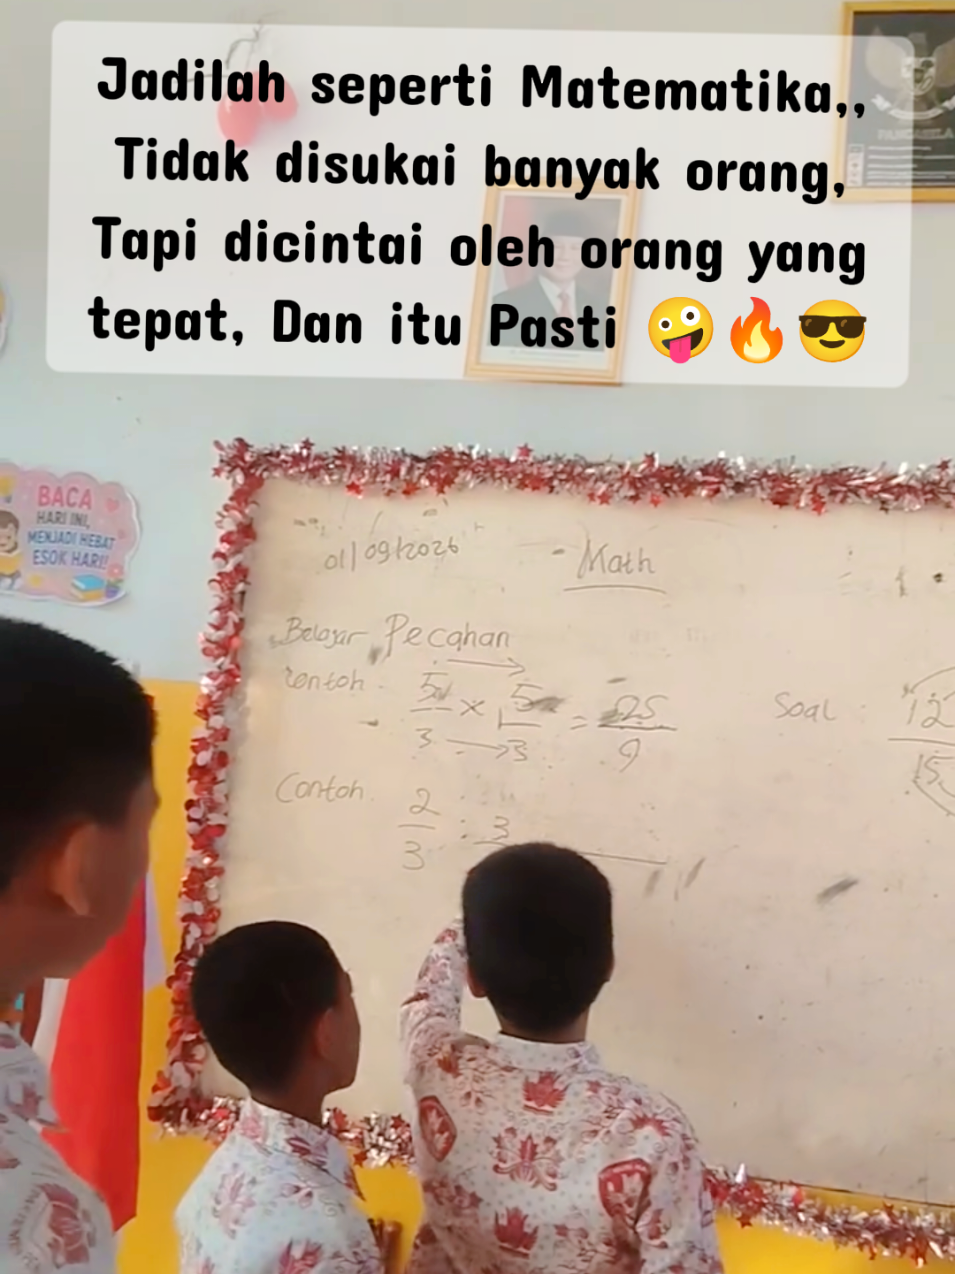 Jadilah seperti Matematika,,
Tidak disukai banyak orang,
Tapi dicintai oleh orang yang
tepat, Dan itu Pasti 🤪🔥😎
PANCASILA
BACA
HARI INI,
MENJADI HEBAT
ESOK HARI!
01/09/2026 - Math
Belajar Pecahan
Contoh 5/3 × 5/3 = 25/9
Soal : 12
15
Contoh 2/3 : 3